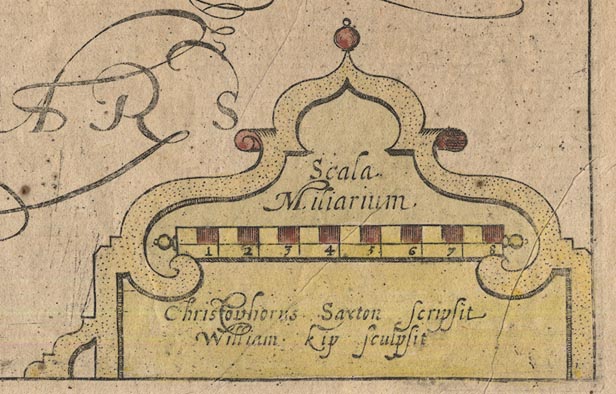 ARS
Scala
Miliarium.
1 2 3 4 5 6 7 8
Christophorus Saxton scripsit
William kip sculpsit